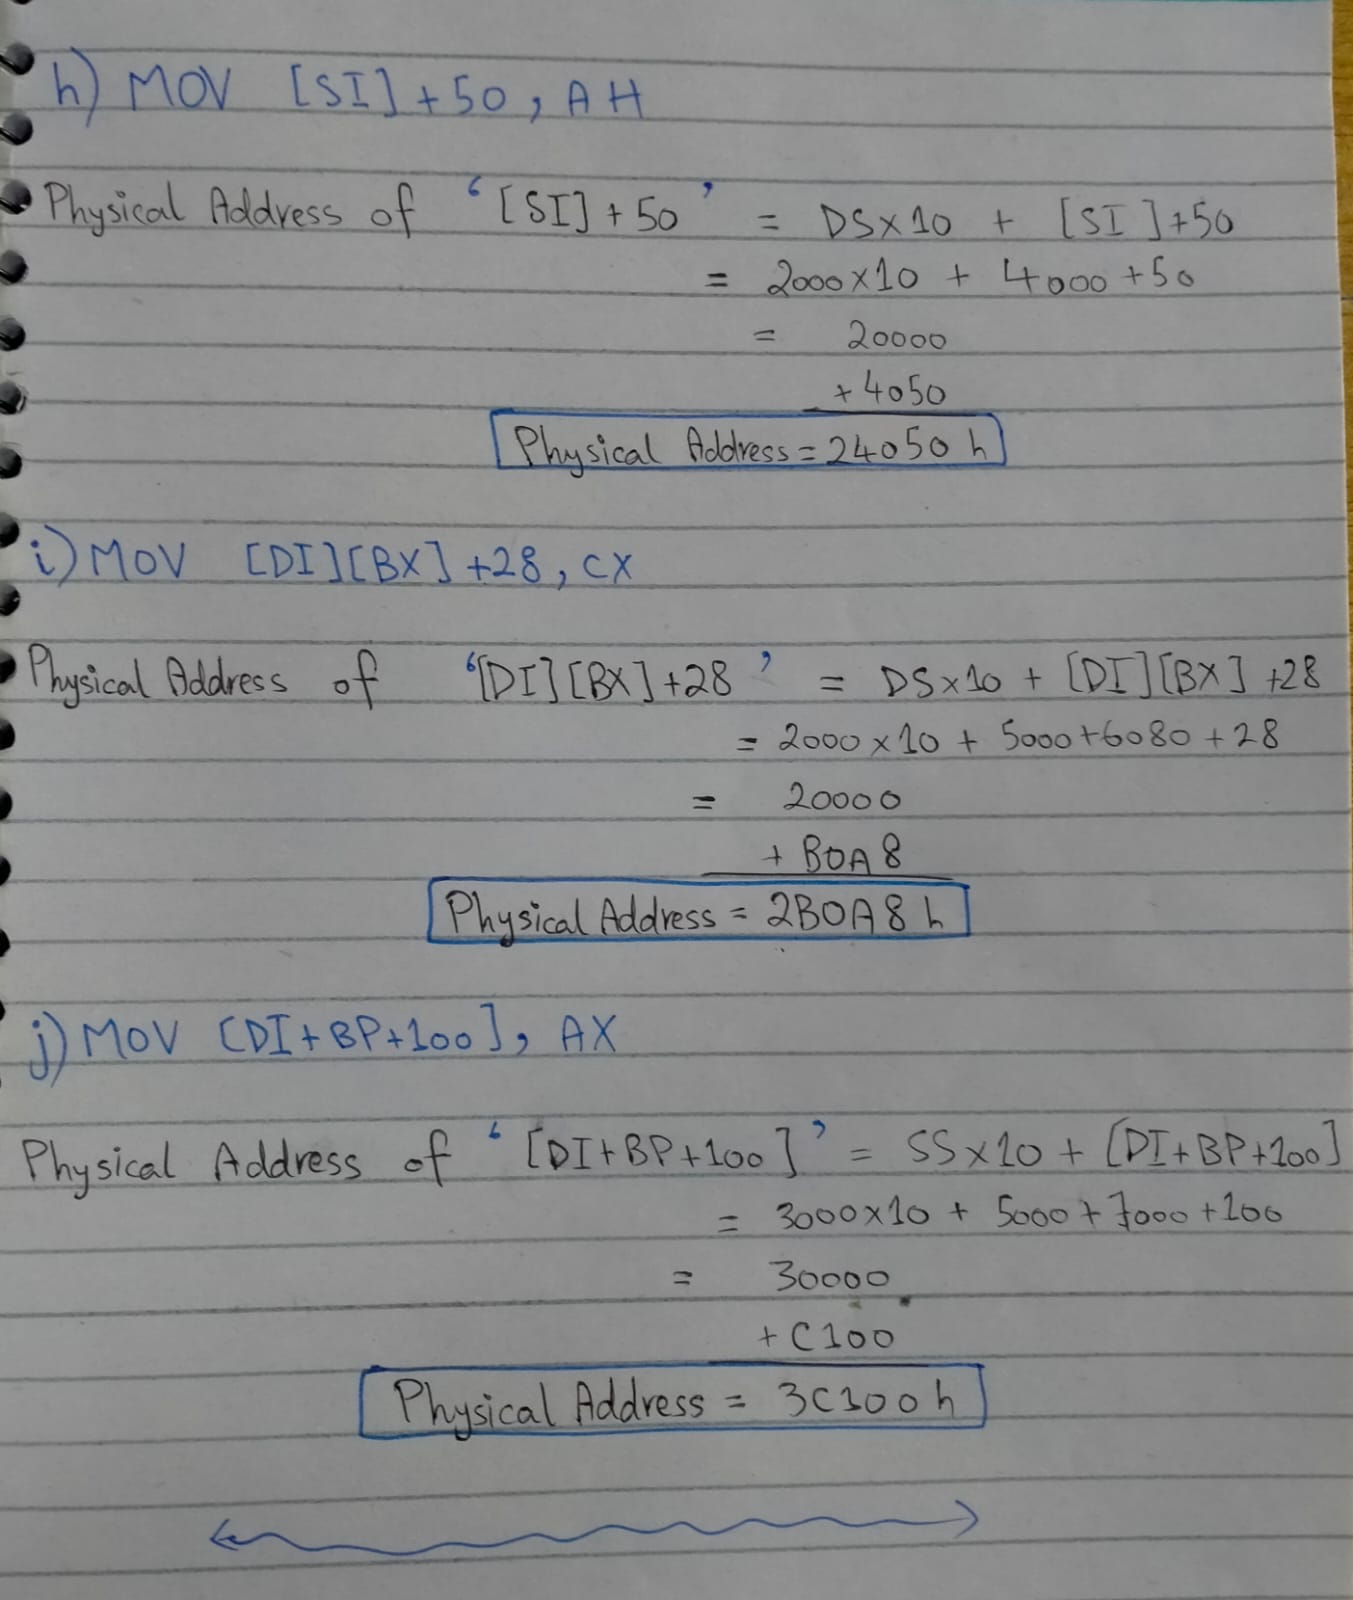 h) MOV [SI]+50, AH
Physical Address of ‘[SI]+50’ = DS×10 + [SI]+50
= 2000×10 + 4000+50
= 20000
+4050
Physical Address = 24050 h
i) MOV [DI][BX]+28, CX
Physical Address of ‘[DI][BX]+28’ = DS×10 + [DI][BX]+28
= 2000×10 + 5000+6080+28
= 20000
+ B0A8
Physical Address = 2B0A8 h
j) MOV [DI+BP+100], AX
Physical Address of ‘[DI+BP+100]’ = SS×10 + [DI+BP+100]
= 3000×10 + 5000+7000+100
= 30000
+ C100
Physical Address = 3C100 h